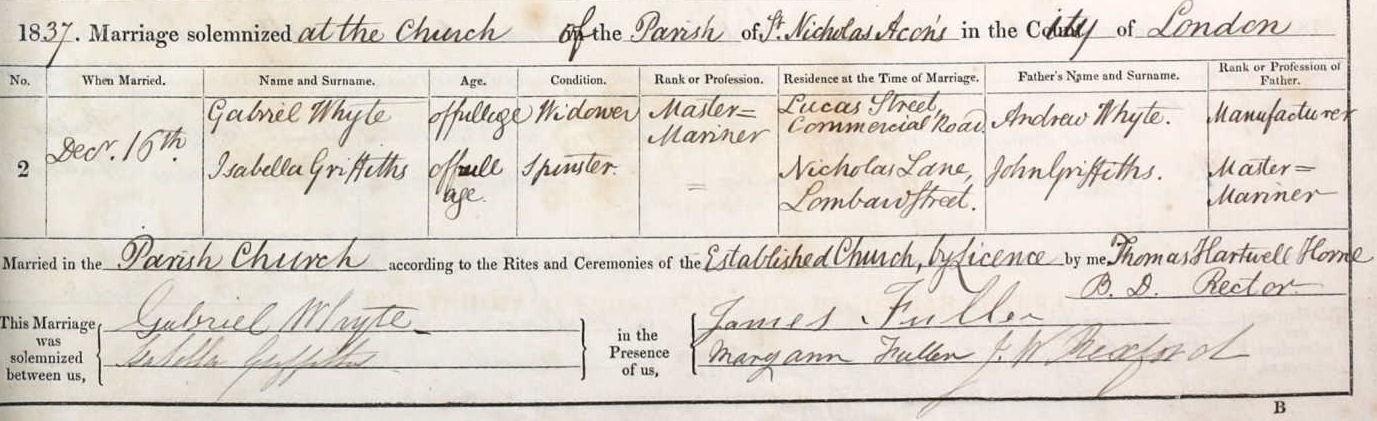 1837. Marriage solemnized at the Church of the Parish of St. Nicholas Acon's in the City of London
No. When Married. Name and Surname. Age. Condition. Rank or Profession. Residence at the Time of Marriage. Father's Name and Surname. Rank or Profession of Father.
2 Decr. 16th Gabriel Whyte of full age Widower Master= Mariner Lucas Street, Commercial Road Andrew Whyte. Manufacturer
Isabella Griffiths of full age. Spinster. = Nicholas Lane, Lombard Street. John Griffiths. Master= Mariner
Married in the Parish Church according to the Rites and Ceremonies of the Established Church, by Licence by me, Thomas Hartwell Horne
B. D. Rector
This Marriage was solemnized between us, Gabriel Whyte in the Presence of us, James Fuller
Isabella Griffiths Mary ann Fuller J. W.
B